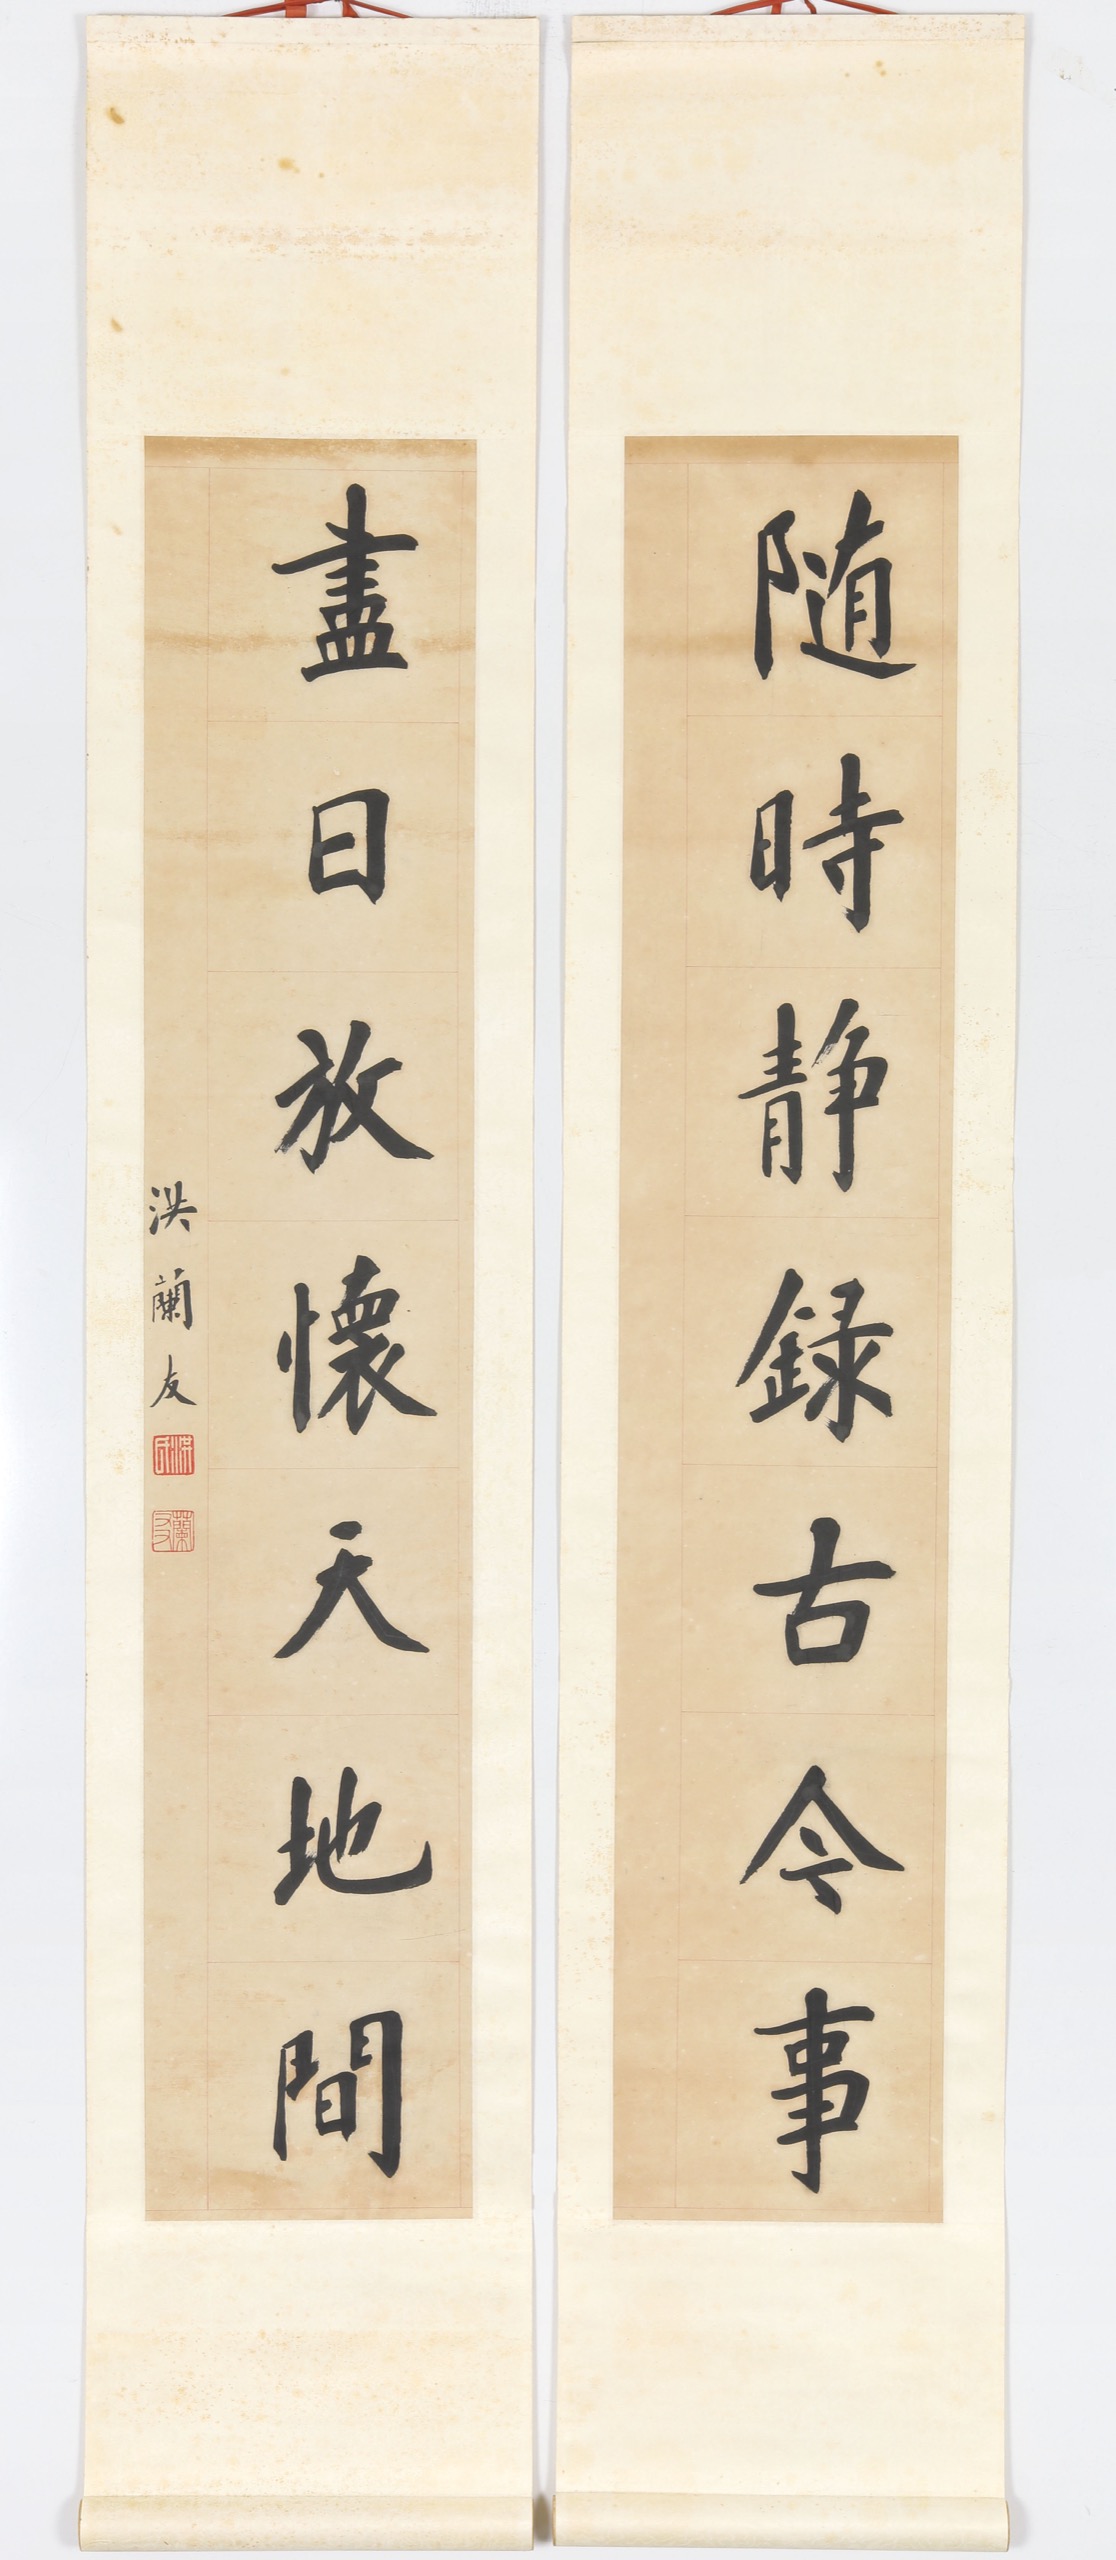 随時静録古今事
盡日放懷天地間
洪蘭友
洪
蘭友